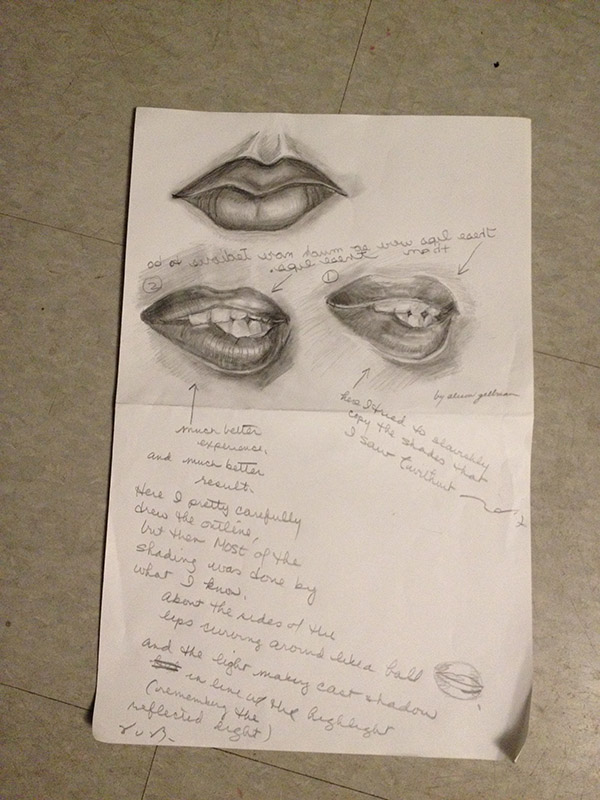 these lips were so much more tedious to do
than these lips.
②
①
by gellman
here I tried to slavishly
copy the shades that
I saw (without
much better
experience,
and much better
result.
Here I pretty carefully
drew the outline,
but then most of the
shading was done by
what I know,
about the sides of the
lips curving around like a ball
and the light making cast shadow
in line w/ the highlight
(remembering the
reflected light)